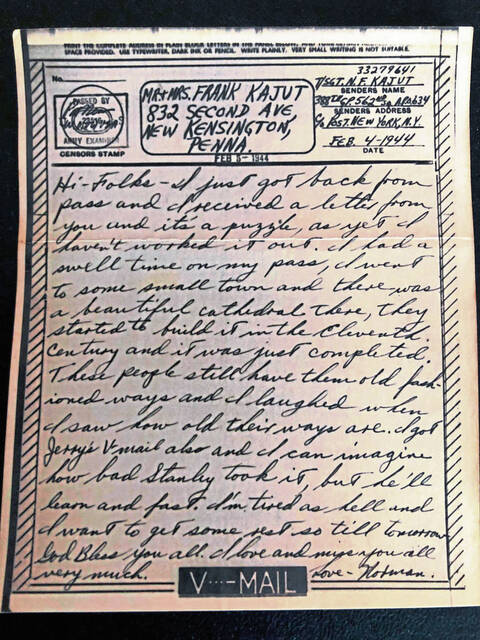 PRINT THE COMPLETE ADDRESS IN PLAIN BLOCK LETTERS IN THE PANEL BELOW, AND YOUR RETURN ADDRESS
SPACE PROVIDED. USE TYPEWRITER, DARK INK OR PENCIL. WRITE PLAINLY. VERY SMALL WRITING IS NOT SUITABLE.
No.
PASSED BY
ARMY EXAMINER
CENSORS STAMP
MR + MRS. FRANK KAJUT
832 SECOND AVE
NEW KENSINGTON,
PENNA.
FEB 5 - 1944
33279641
T/SGT. N.F. KAJUT
SENDERS NAME
562
APO 634
SENDERS ADDRESS
C/o POST. NEW YORK, N.Y.
FEB. 4-1944
DATE
Hi-Folks-I just got back from
pass and I received a lette from
you and it's a puzzle, as yet I
haven't worked it out. I had a
swell time on my pass, I went
to some small town and there was
a beautiful cathedral there, they
started to build it in the Eleventh.
Century and it was just completed.
These people still have them old fash-
ioned ways and I laughed when
I saw how old their ways are. I got
Jerry's V-mail also and I can imagine
how bad Stanley took it, but he'll
learn and fast. I'm tired as hell and
I want to get some rest so till tomorrow
God Bless you all. I love and miss you all
very much. Love - Norman.
V···-MAIL